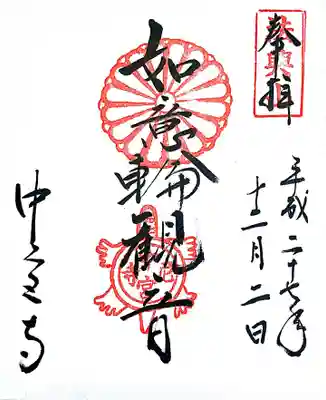 奉拝
平成二十七年
十二月二日
如意輪觀音
中宮寺